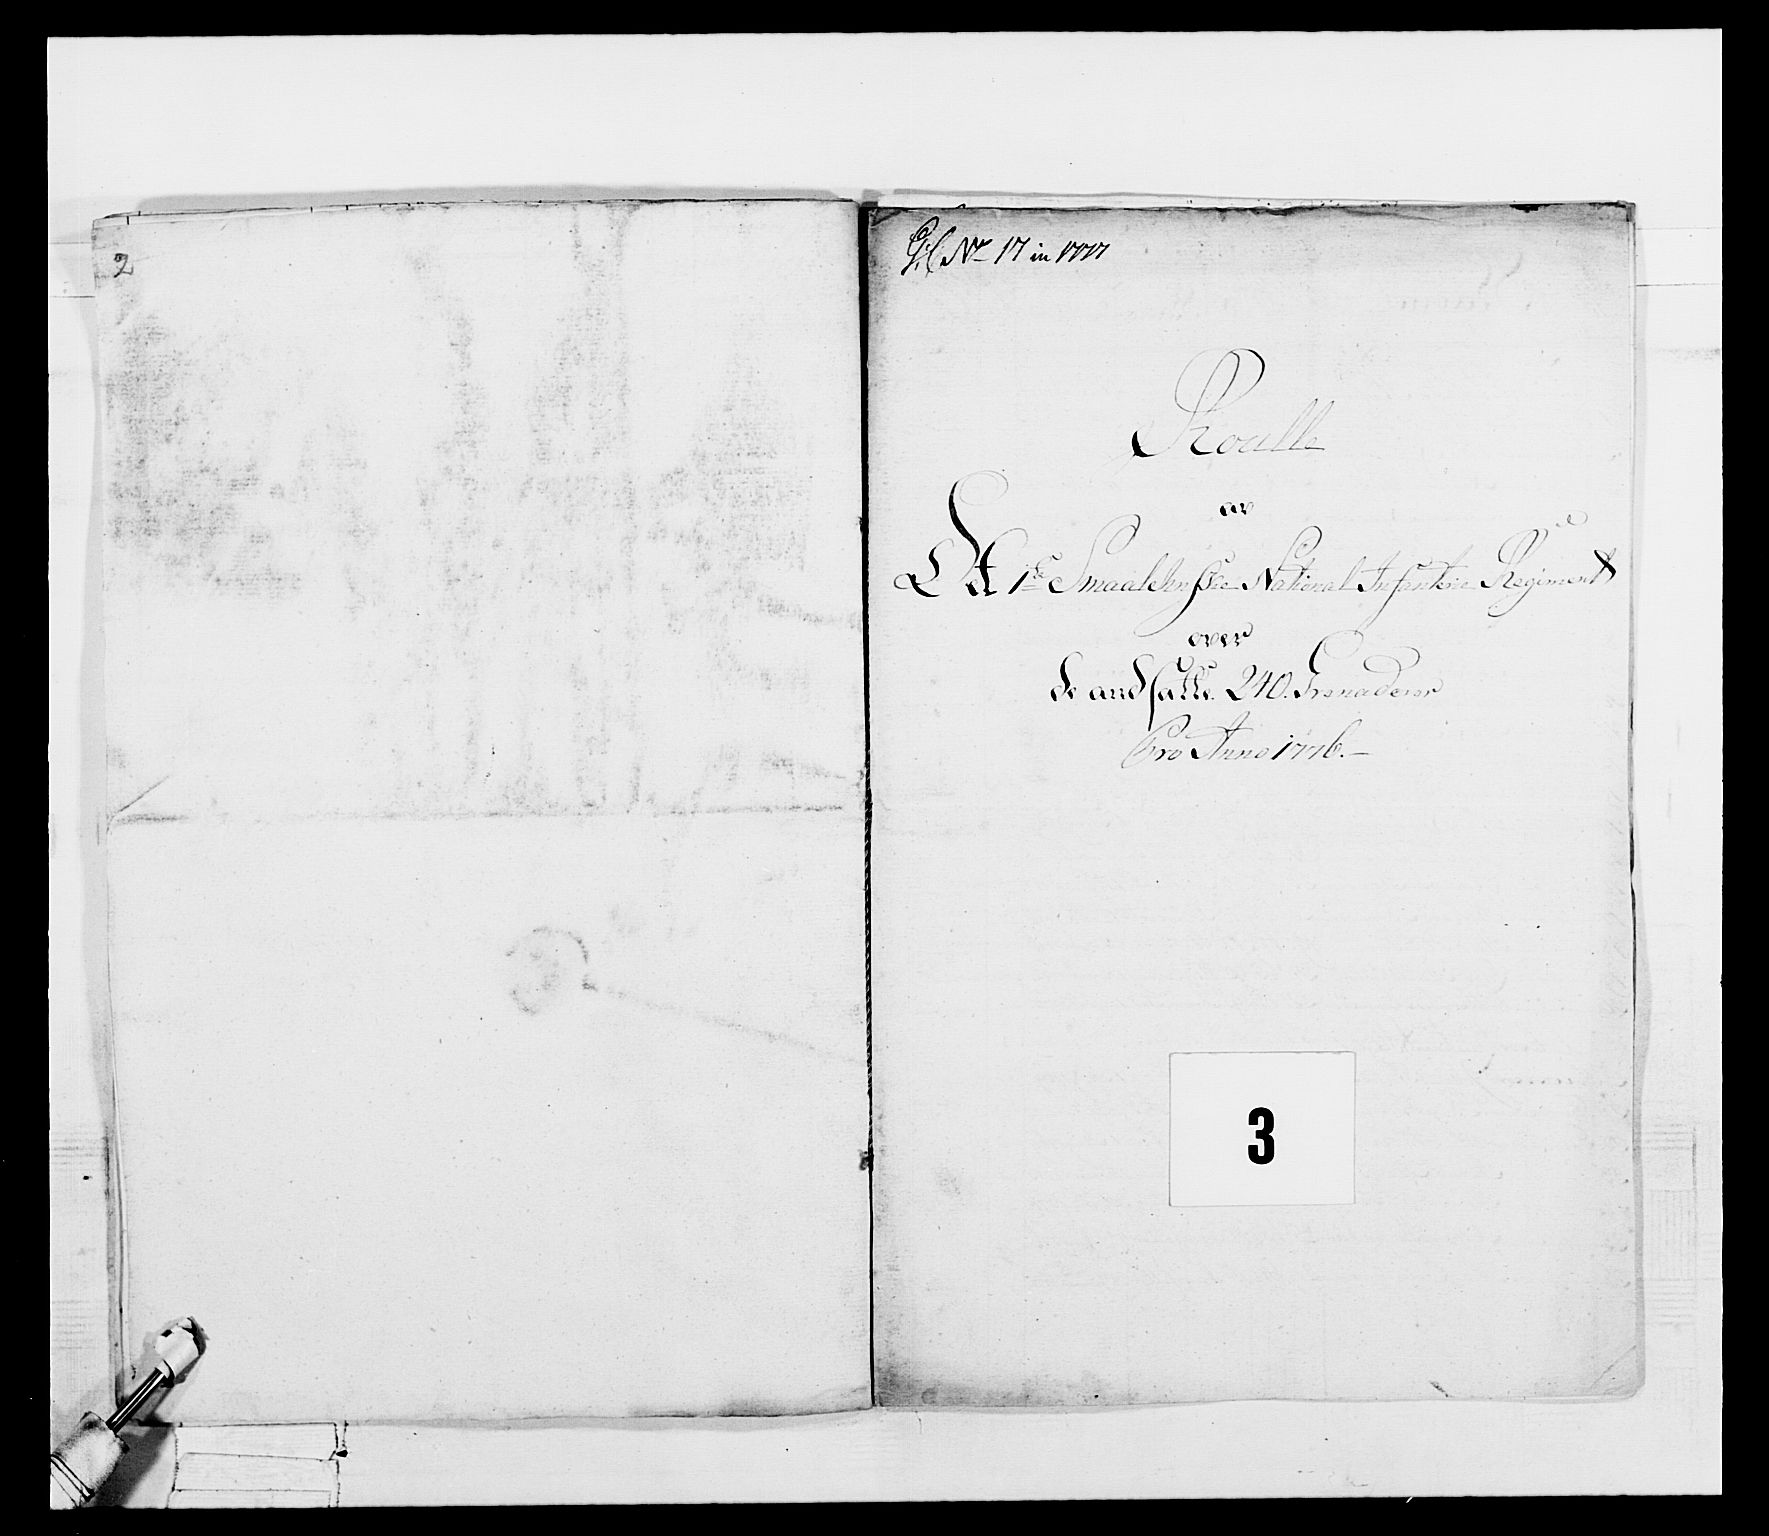 2
No 17 in 1777
Roulle
av
Det 1ste Smaalehnske National Infanterie Regiment
over
de ansatte 240. Grenaderer
Pro Anno 1776.
3